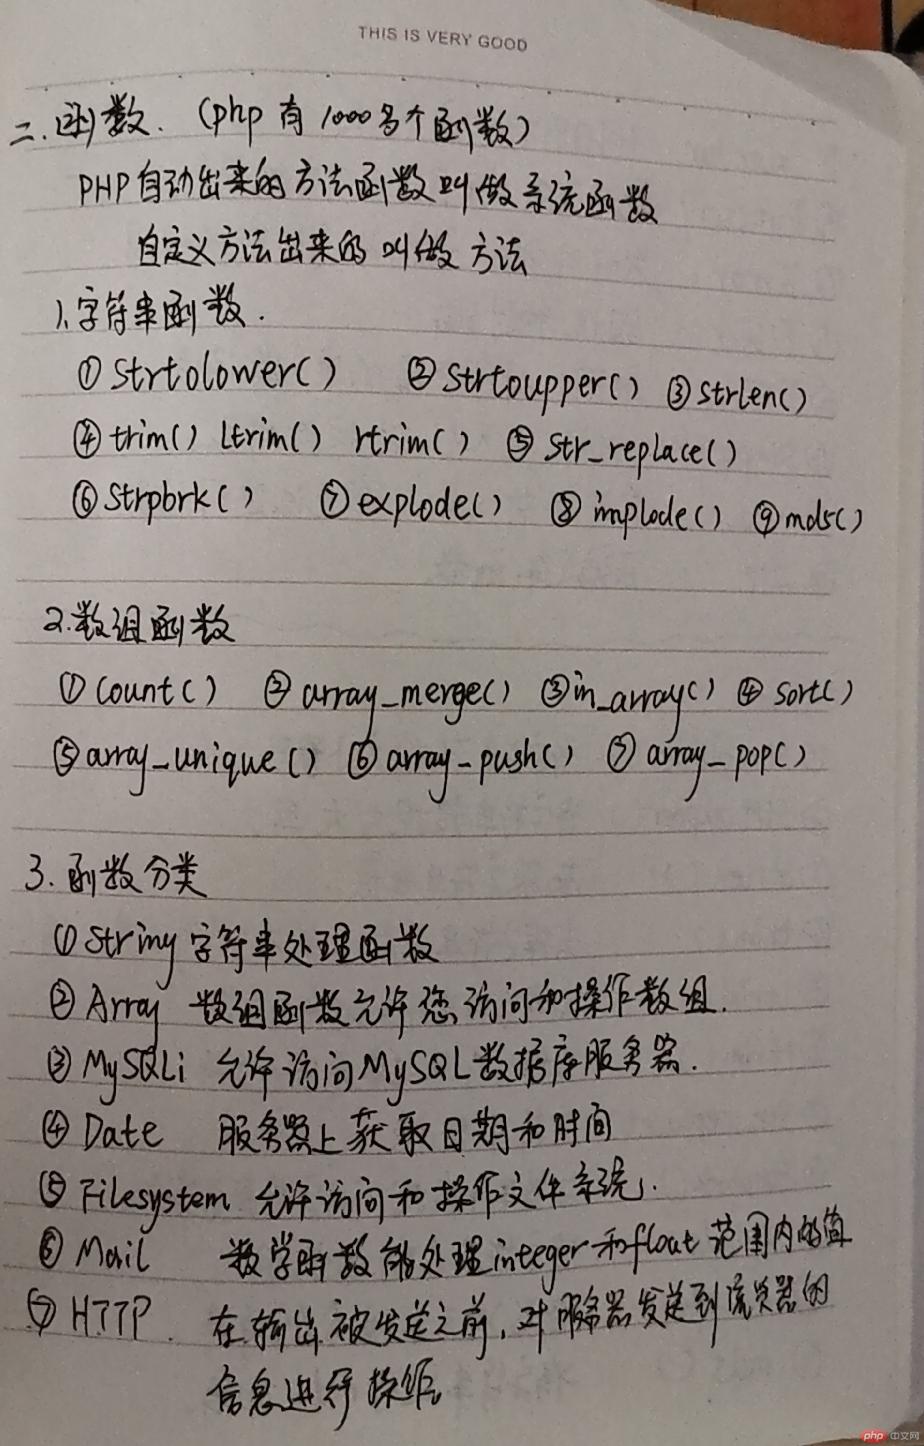 THIS IS VERY GOOD
二.函数.（php有1000多个函数）
PHP自动出来的方法函数叫做系统函数
自定义方法出来的叫做方法
1.字符串函数.
①Strtolower() ②Strtoupper() ③strlen()
④trim() ltrim() rtrim() ⑤Str_replace()
⑥Strpbrk() ⑦explode() ⑧implode() ⑨md5()
2.数组函数
①Count() ②array_merge() ③in_array() ④sort()
⑤array_unique() ⑥array_push() ⑦array_pop()
3.函数分类
①String字符串处理函数
②Array 数组函数允许您访问和操作数组.
③MySQLi 允许访问MySQL数据库服务器.
④Date 服务器上获取日期和时间
⑤Filesystem 允许访问和操作文件系统.
⑥Mail 数学函数能处理integer和float范围内的值
⑦HTTP. 在输出被发送之前,对服务器发送到浏览器的
信息进行操作。
php中文网